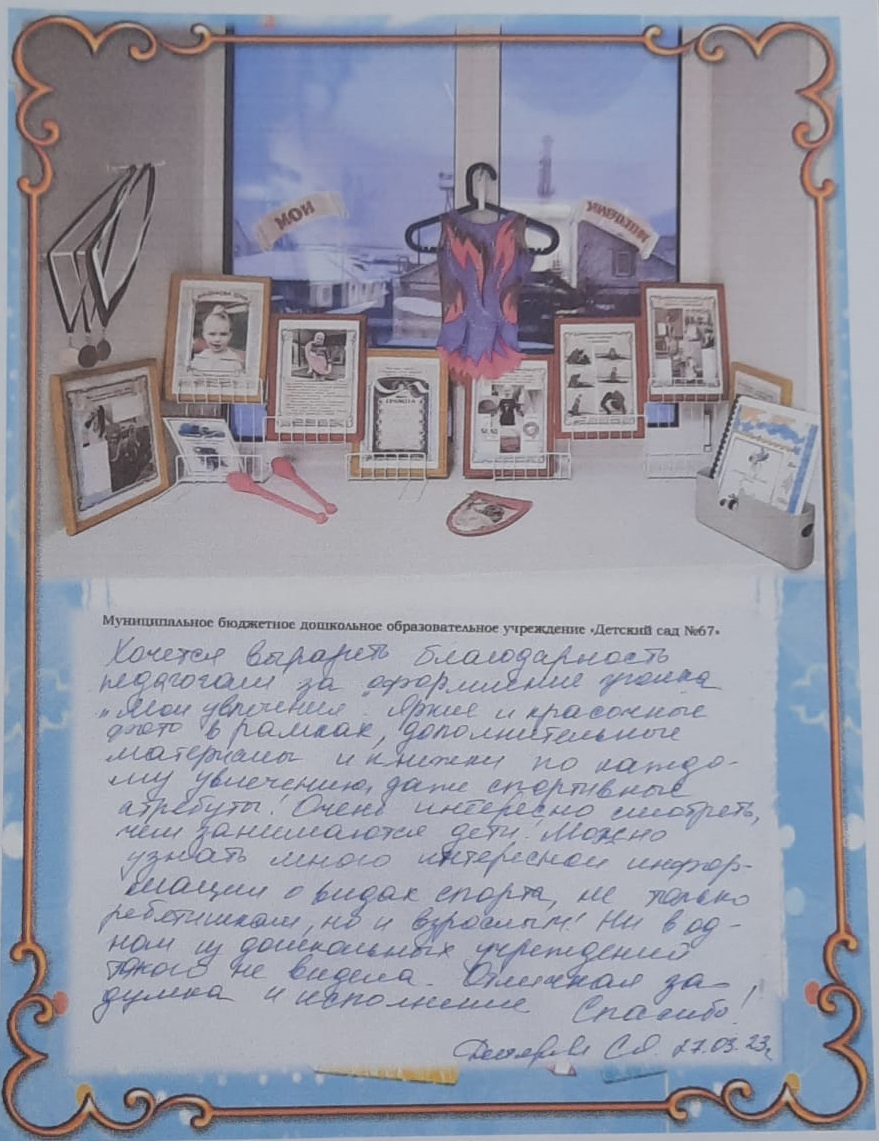 МОИ
УВЛЕЧЕНИЯ
ГРАМОТА
Муниципальное бюджетное дошкольное образовательное учреждение «Детский сад №67»
Хочется выразить благодарность
педагогам за оформление уголка
"Мои увлечения. Яркие и красочные
фото в рамках, дополнительные
материалы и книжки по каждо-
му увлечению, даже спортивные
атрибуты! Очень интересно смотреть,
чем занимаются дети! Можно
узнать много интересной инфор-
мации о видах спорта, не только
ребятишкам, но и взрослым! Ни в од-
ном из дошкольных учреждений
такого не видела. Отличная за-
думка и исполнение Спасибо!
27.03.23г.